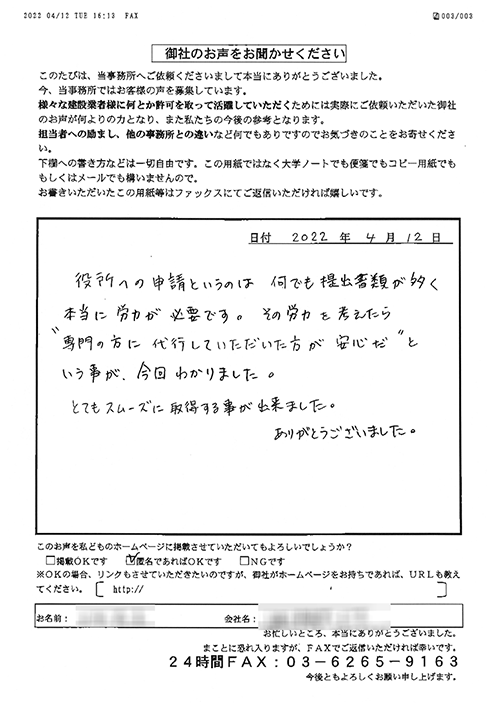 2022 04/12 TUE 16:13 FAX 003/003
御社のお声をお聞かせください
このたびは、当事務所へご依頼くださいまして本当にありがとうございました。
今、当事務所ではお客様の声を募集しています。
様々な建設業者様に何とか許可を取って活躍していただくためには実際にご依頼いただいた御社
のお声が何よりの力となり、また私たちの今後の参考となります。
担当者への励まし、他の事務所との違いなど何でもありですのでお気づきのことをお寄せくださ
い。
下欄への書き方などは一切自由です。この用紙ではなく大学ノートでも便箋でもコピー用紙でも
もしくはメールでも構いませんので。
お書きいただいたこの用紙等はファックスにてご返信いただければ嬉しいです。
日付 2022 年 4 月 12 日
役所への申請というのは 何でも提出書類が多く
本当に労力が必要です。その労力を考えたら
"専門の方に代行していただいた方が安心だ"と
いう事が、今回わかりました。
とてもスムーズに取得する事が出来ました。
ありがとうございました。
このお声を私どものホームページに掲載させていただいてもよろしいでしょうか？
□掲載ＯＫです ☑匿名であればＯＫです □ＮＧです
※ＯＫの場合、リンクもさせていただきたいのですが、御社がホームページをお持ちであれば、ＵＲＬも教え
てください。［ http:// ］
お名前： 会社名：
お忙しいところ、本当にありがとうございました。
まことに恐れ入りますが、ＦＡＸでご返信いただければ幸いです。
２４時間ＦＡＸ：０３－６２６５－９１６３
今後ともよろしくお願い申し上げます。